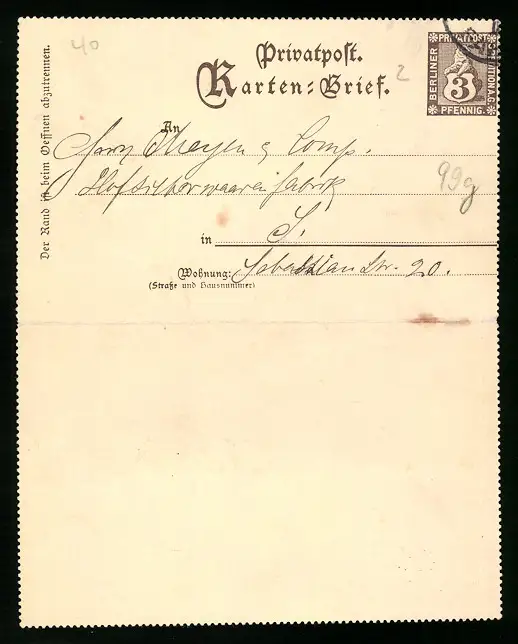 Privatpost.
Karten-Brief.
BERLINER PRIVATPOST
3
PFENNIG.
40
2
Der Rand ist beim Oeffnen abzutrennen.
An
Herrn Meyen & Comp.
Hofsilberwaarenfabrik
99g
in S.
Wohnung: Sebastian Str. 20.
(Straße und Hausnummer)